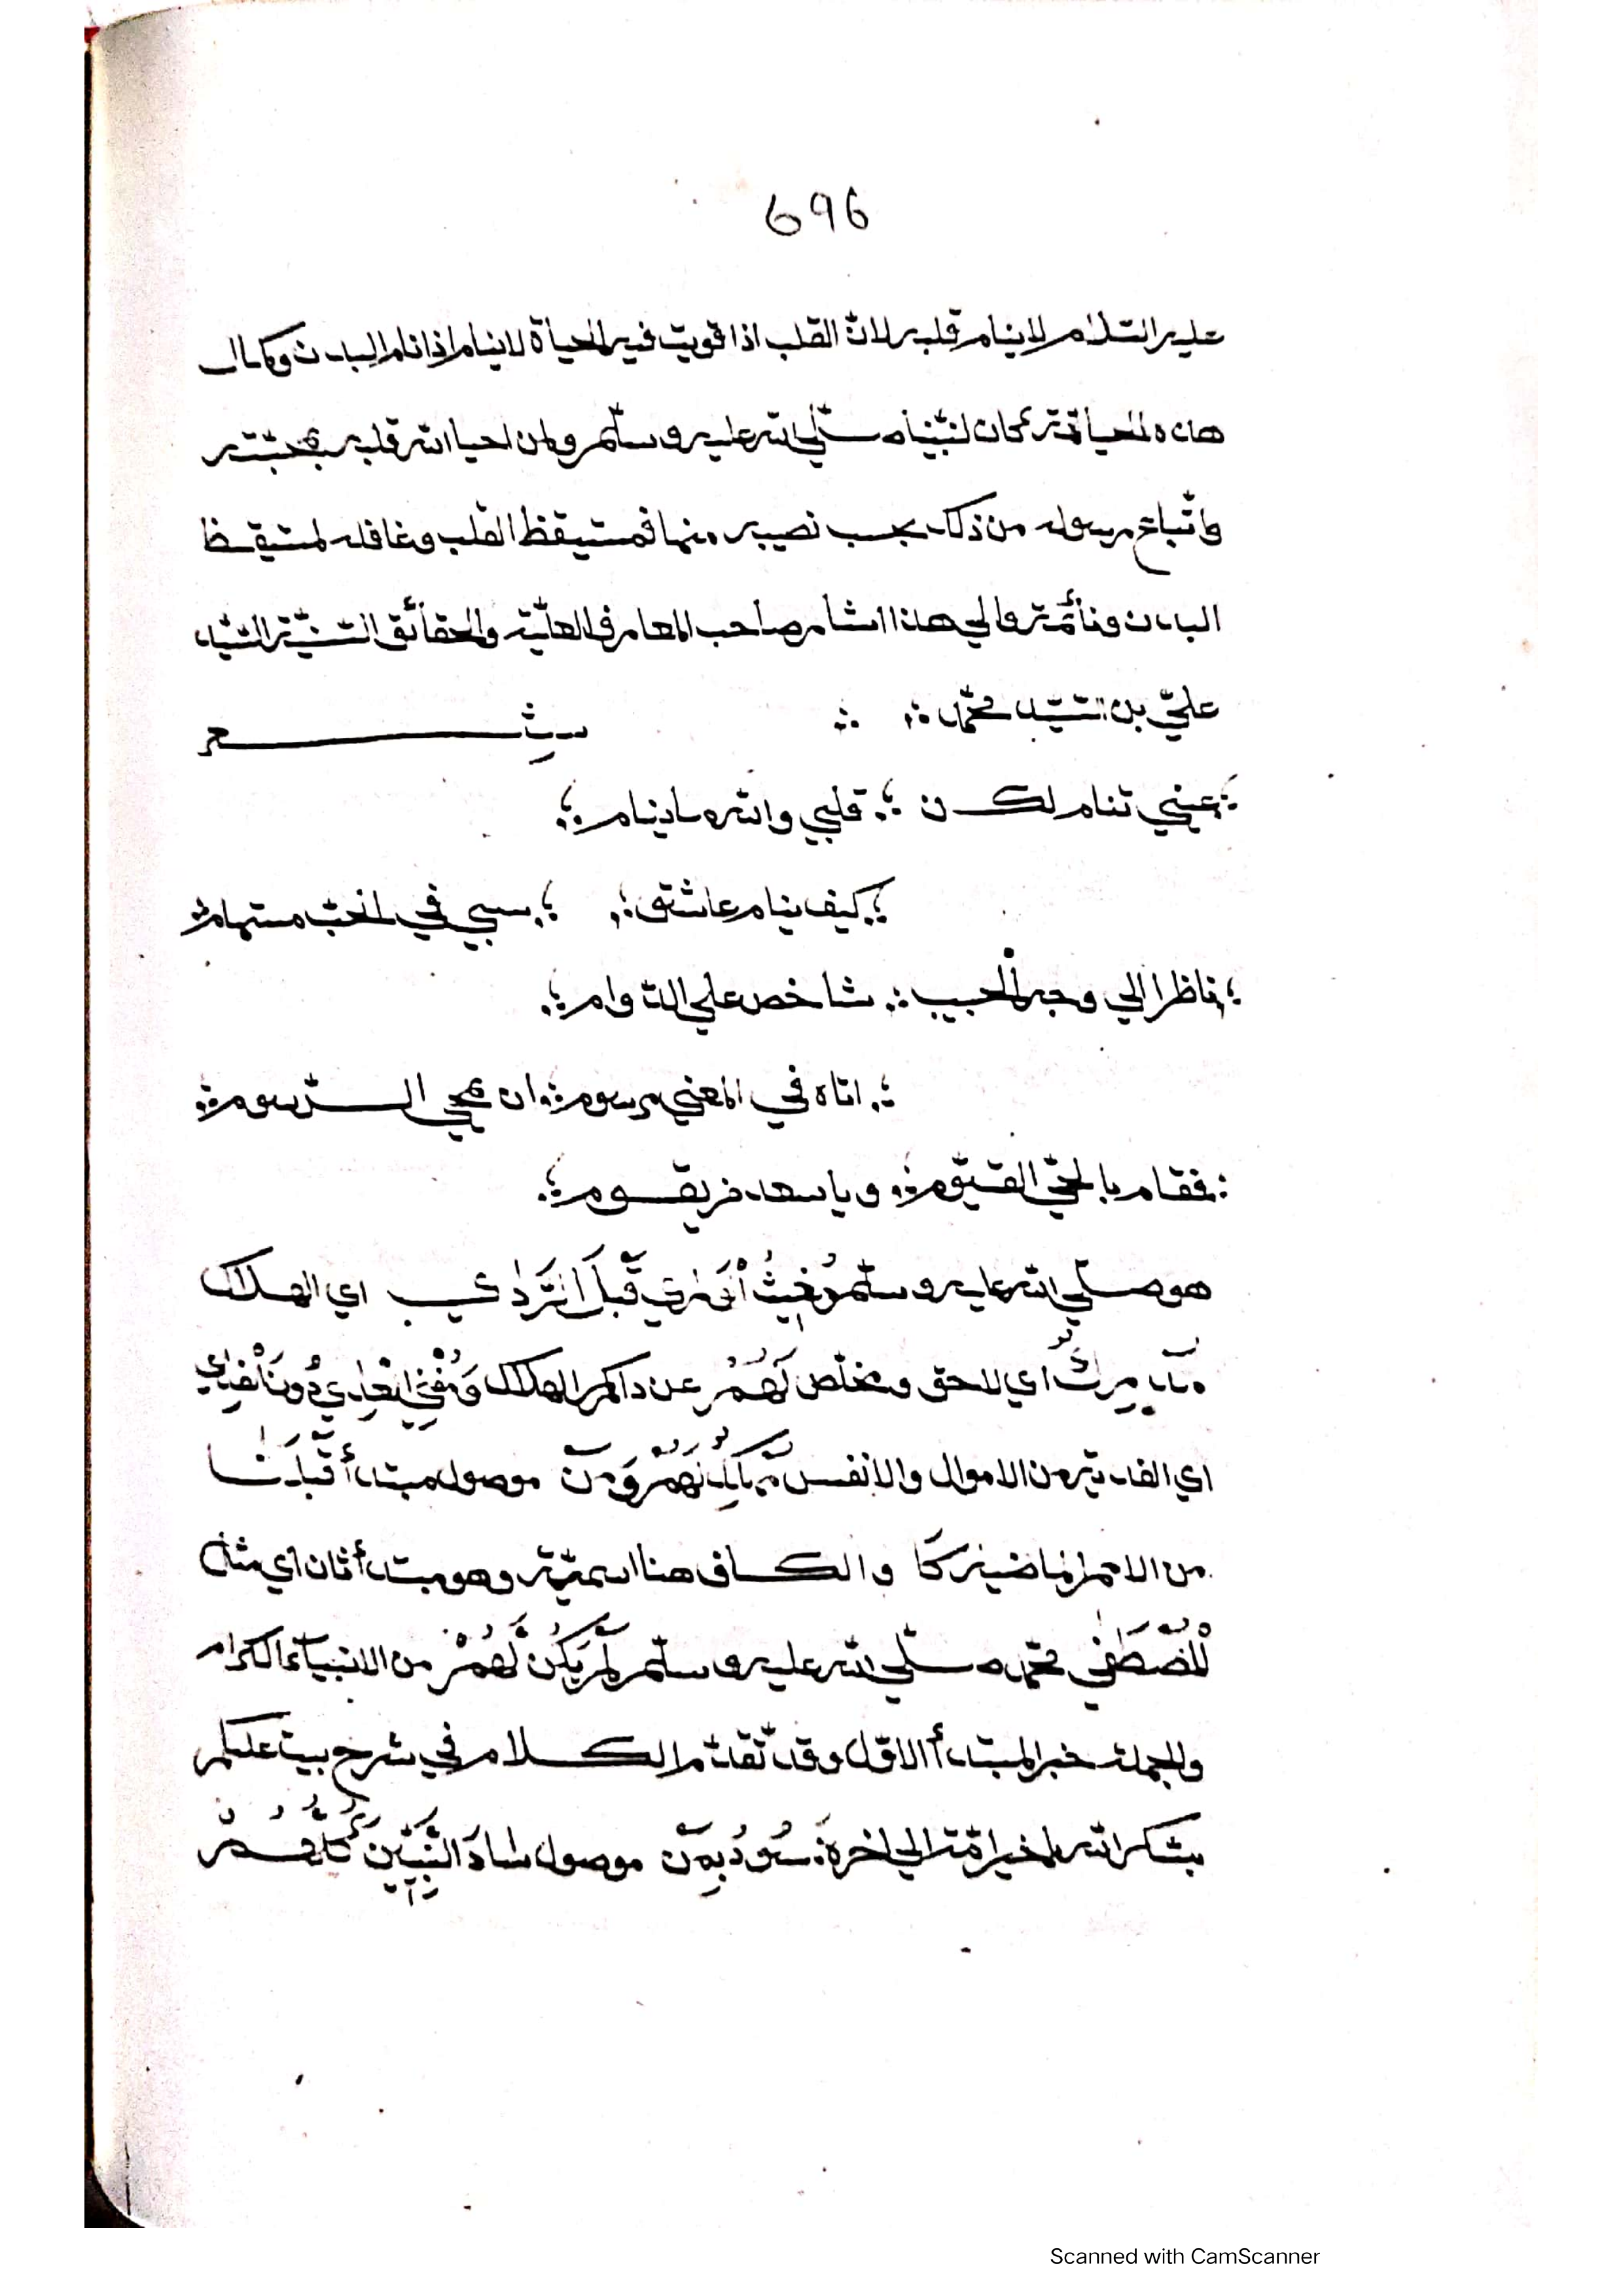 696
عليه السّلام لا ينام قلبه لانّ القلب اذا قويت فيه الحياة لا ينام اذا نام البدن وكمال
هذه الحياة كان لنبيّنا صلّي الله عليه وسلّم ولمن احيا الله قلبه بمحبّته
واتّباع رسوله من ذلك بحسب نصيبه منها فمستيقظ القلب وغافله لمستيقظ
البدن ونائمه والي هذا اشار صاحب المعارف العليّة والحقائق السّنيّة السّيّد
عليّ بن السّيّد محمّد
شعر
عيني تنام لكن قلبي والله ما ينام
كيف ينام عاشق سبي في الحبّ مستهام
ناظرا الي وجه الحبيب شاخص علي الدّوام
اتاه في المعني مرسوم ان يمحي الرّسوم
فقام بالحيّ القيّوم ويا سعد من يقوم
هو صلّي الله عليه وسلّم مُغِيثُ الْوَرٰي قَبْلَ الرَّدٰي اي الهلاك
مُدْرِكٌ اي لاحق ومخلّص لَهُمْ عن ذاكم الهلاك وَمُفْنِي
اي الفدية من الاموال والانفس وَمَنْ موصول مبتدأ قَبْلَنَا
من الامم الماضية كا والكاف هنا اسميّة وهو مبتدأ ثان اي مثل
الْمُصْطَفٰي محمّد صلّي الله عليه وسلّم لَمْ يَكُنْ لَهُمْ من الانبياء الكرام
والجملة خبر المبتدأ الاوّل وقد تقدّم الكلام في شرح بيت عليكم
بشكر الله يا خير امّة الي اخره يَسُودُ بِمَنْ موصول سَادَ النَّبِيِّينَ كُلَّهُمْ
Scanned with CamScanner